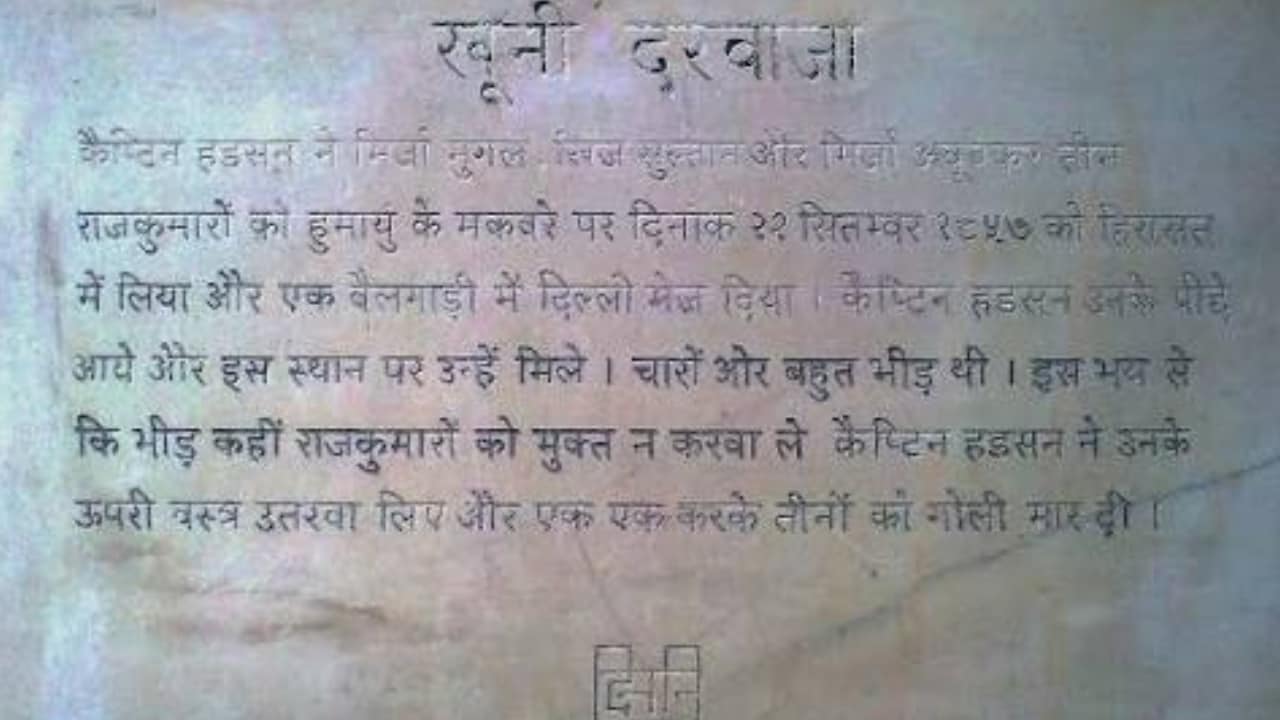 खूनी दरवाजा
कैप्टिन हडसन ने मिर्जा मुगल खिज्र सुल्तान और मिर्जा अबूबकर तीन
राजकुमारों को हुमायु के मकबरे पर दिनांक २२ सितम्वर १८५७ को हिरासत
में लिया और एक बैलगाड़ी में दिल्ली भेज दिया । कैप्टिन हडसन उनके पीछे
आये और इस स्थान पर उन्हें मिले । चारों ओर बहुत भीड़ थी । इस भय से
कि भीड़ कहीं राजकुमारों को मुक्त न करवा ले कैप्टिन हडसन ने उनके
ऊपरी वस्त्र उतरवा लिए और एक एक करके तीनों को गोली मार दी ।